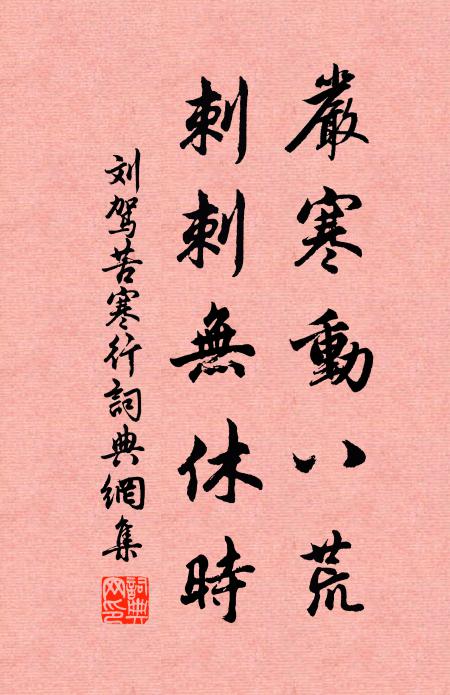 嚴寒動八荒
刺刺無休時
刘駕苦寒行詞典網集
詞典网印